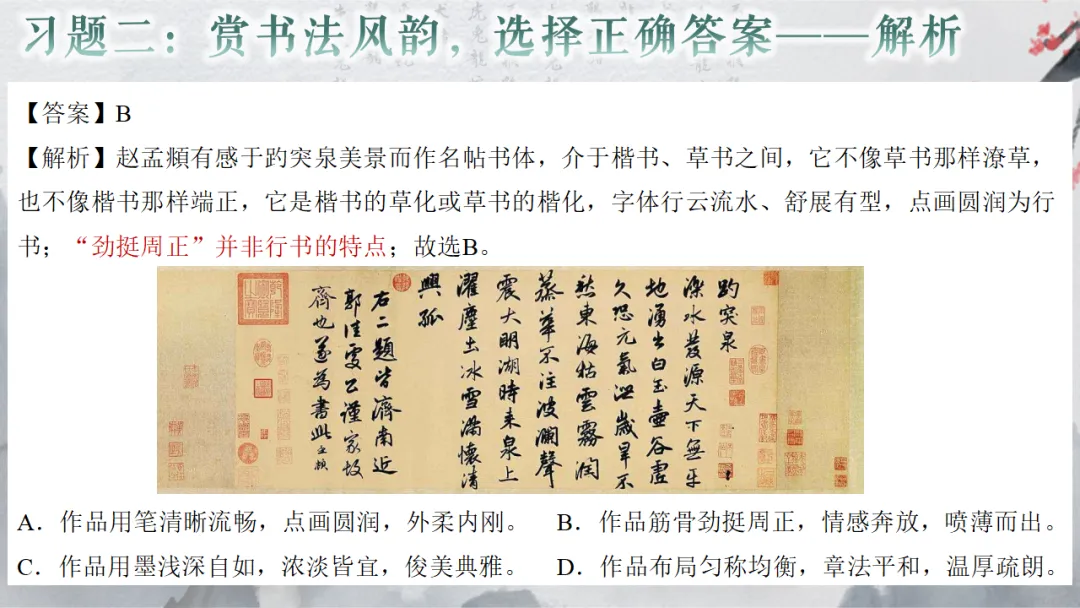 习题二：赏书法风韵，选择正确答案——解析
【答案】B
【解析】赵孟頫有感于趵突泉美景而作名帖书体，介于楷书、草书之间，它不像草书那样潦草，
也不像楷书那样端正，它是楷书的草化或草书的楷化，字体行云流水、舒展有型，点画圆润为行
书；“劲挺周正”并非行书的特点；故选B。
趵突泉
濼水發源天下無平
地湧出白玉壺谷虛
久恐元氣洩歲旱不
愁東海枯雲霧潤
蒸華不注波瀾聲
震大明湖時来泉上
濯塵土冰雪滿懷清
興孤
右二題皆濟南近
郭佳處公謹家故
齊也遂為書此孟頫
A．作品用笔清晰流畅，点画圆润，外柔内刚。
B．作品筋骨劲挺周正，情感奔放，喷薄而出。
C．作品用墨浅深自如，浓淡皆宜，俊美典雅。
D．作品布局匀称均衡，章法平和，温厚疏朗。